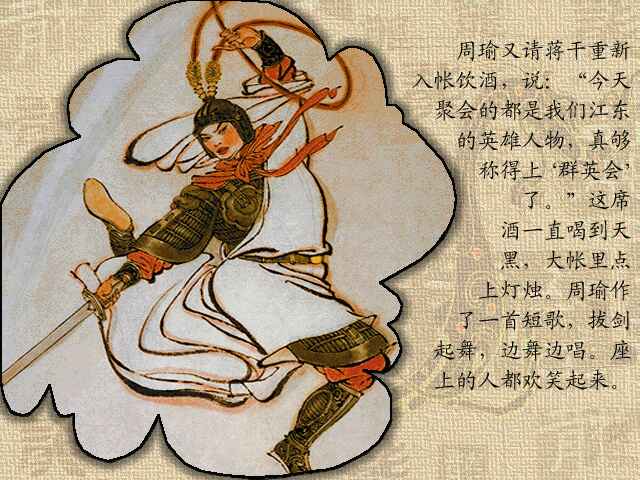 周瑜又请蒋干重新
入帐饮酒，说：“今天
聚会的都是我们江东
的英雄人物，真够
称得上‘群英会’
了。”这席
酒一直喝到天
黑，大帐里点
上灯烛。周瑜作
了一首短歌，拔剑
起舞，边舞边唱。座
上的人都欢笑起来。